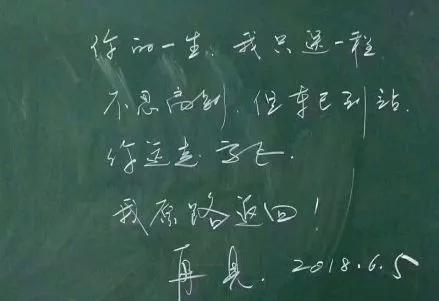 你的一生,我只送一程
不忍离别,但车已到站.
你远走高飞.
我原路返回!
再见. 2018.6.5